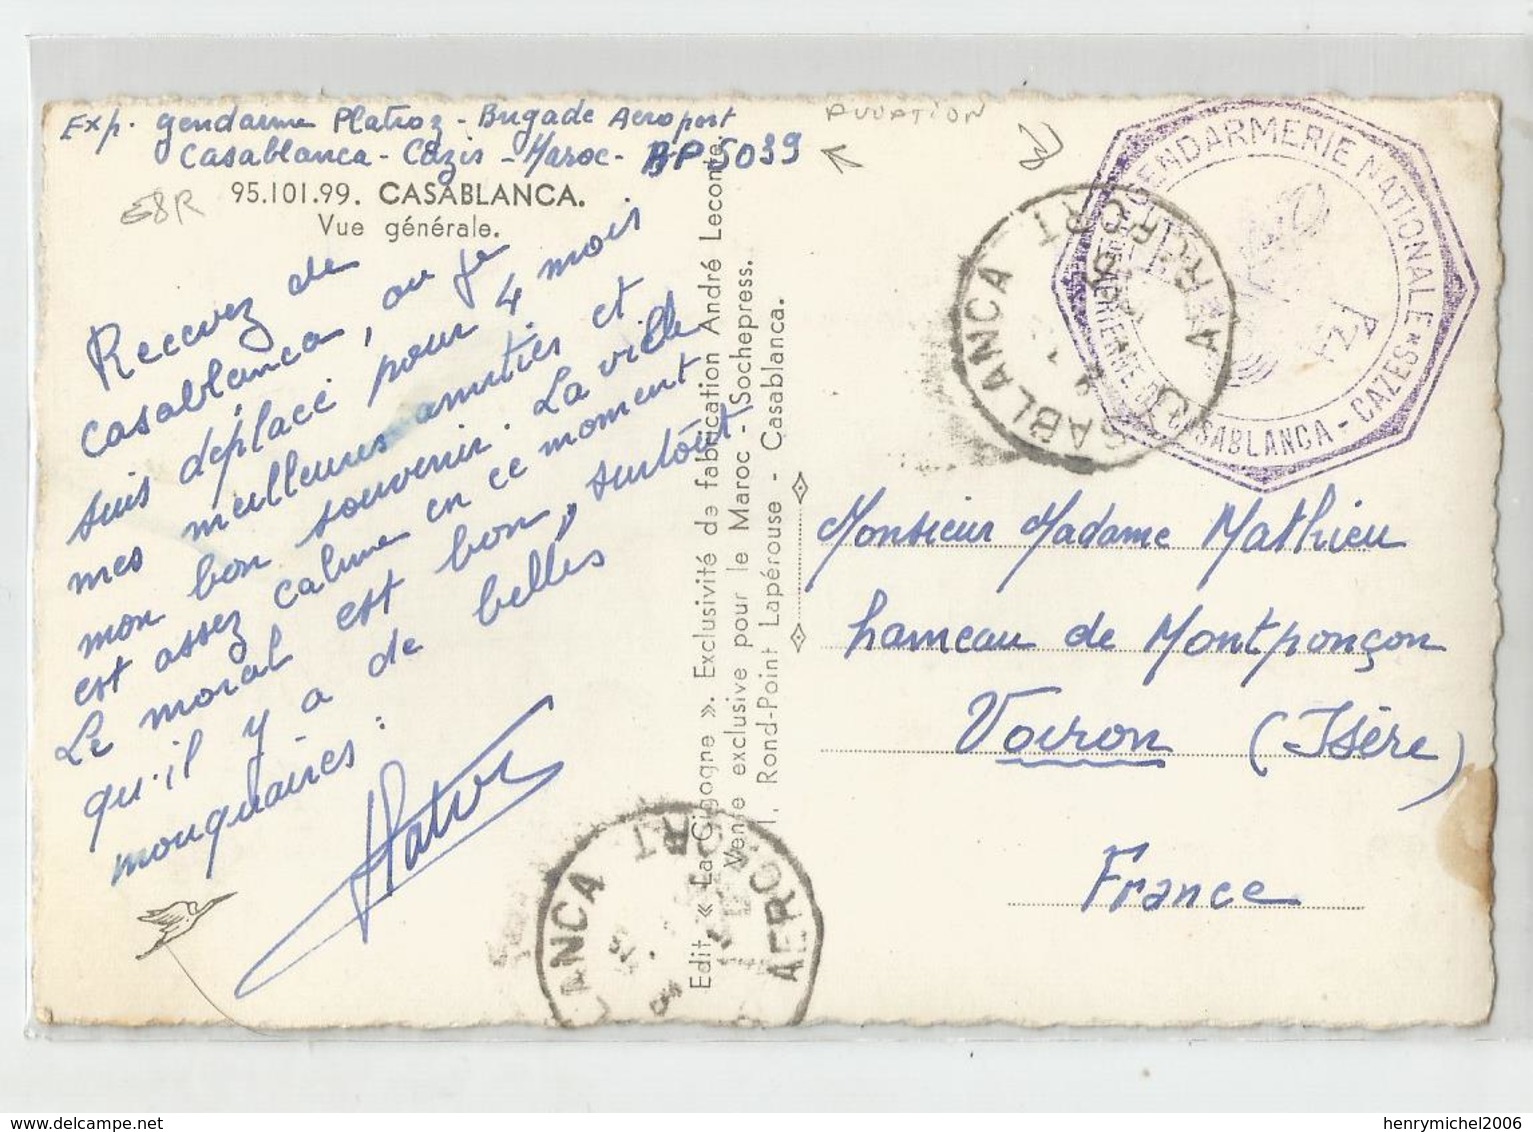 Exp. gendarme Platroz - Brigade Aeroport
Casablanca - Cazis - Maroc - BP 5039
AVIATION
E8R
95.101.99. CASABLANCA.
Vue générale.
Recevez de
Casablanca, ou je
suis déplacé pour 4 mois
mes meilleures amitiés et
mon bon souvenir. La ville
est assez calme en ce moment
Le moral est bon, surtout
qu'il y a de belles
mouquaires.
Edit. « La Cigogne ». Exclusivité de fabrication André Leconte.
Vente exclusive pour le Maroc - Sochepress.
1, Rond-Point Lapérouse - Casablanca.
GENDARMERIE NATIONALE
CASABLANCA - CAZES
CASABLANCA
AEROPORT
Monsieur Madame Mathieu
hameau de Montponçon
Voiron (Isère)
France
CASABLANCA
AEROPORT
henrymichel2006